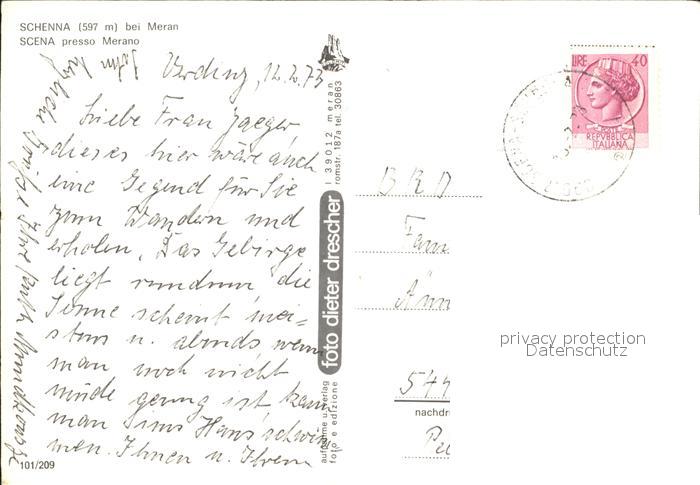 SCHENNA (597 m) bei Meran
SCENA presso Merano
12.2.73
Liebe Frau Jaeger,
dieses hier wäre auch
eine Gegend für Sie
zum Wandern und
erholen. Das Gebirge
liegt rundrum, die
Sonne scheint mei=
stens u. abends wenn
man noch nicht
müde genug ist, kann
man ins Haus schwim
men. Ihnen u. Ihrem
101/209
I 39012 meran
romstr. 187a tel. 30863
foto dieter drescher
aufnahme u. verlag
foto e edizione
LIRE 40
REPVBBLICA
ITALIANA
BRD
Fam
privacy protection
Datenschutz
544
nachdr